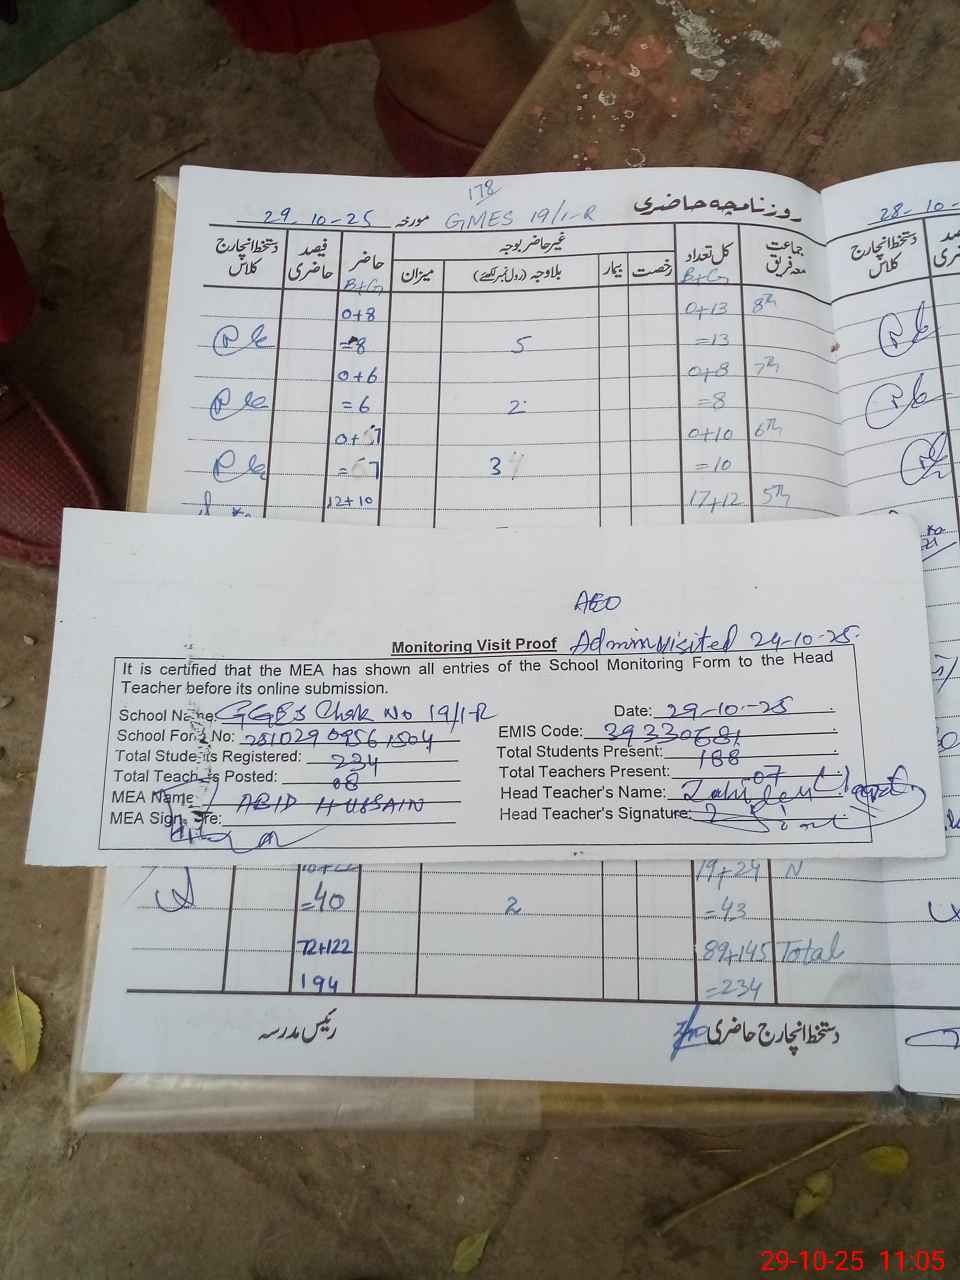 178
روزنامچہ حاضری GMES 19/1-R مورخہ 29-10-25
28-10-
جماعت معہ فریق کل تعداد غیر حاضر بوجہ حاضر فیصد حاضری دستخط انچارج کلاس
رخصت بیمار بلاوجہ (رول نمبر لکھئے) میزان
B+G B+G
دستخط انچارج کلاس
8th 0+13 0+8
=13 5 =8
7th 0+8 0+6
=8 2 =6
6th 0+10 0+7
=10 3 =7
5th 17+12 12+10
AEO
Monitoring Visit Proof Admin visited 29-10-25.
It is certified that the MEA has shown all entries of the School Monitoring Form to the Head
Teacher before its online submission.
School Name: GGES Chak No 19/1-R Date: 29-10-25
School Form No: EMIS Code: 39330681
Total Students Registered: 234 Total Students Present: 188
Total Teachers Posted: 08 Total Teachers Present: 07
MEA Name ABID HUSSAIN Head Teacher's Name:
MEA Signature: Head Teacher's Signature:
N 19+24
=43 2 =40
Total 89+145 72+122
=234 194
دستخط انچارج حاضری رئیس مدرسہ
29-10-25 11:05